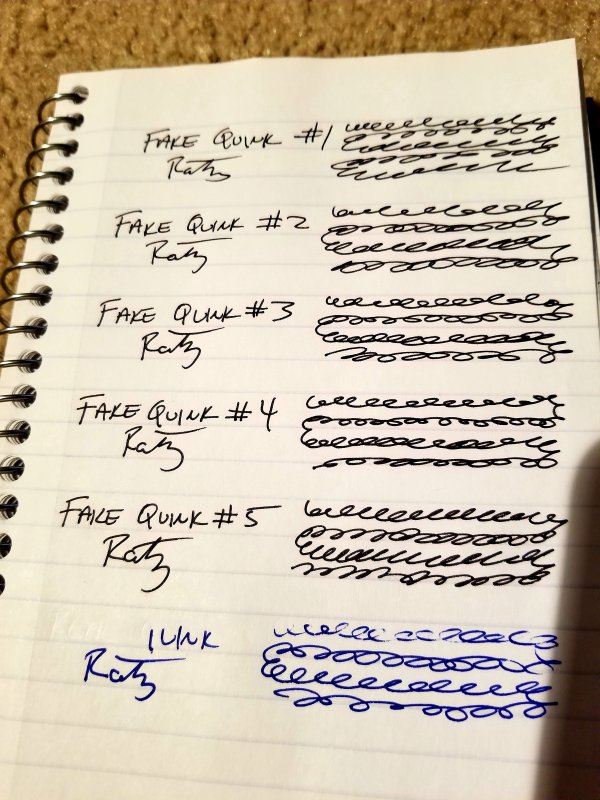 FAKE QUINK #1
Ratz
FAKE QUINK #2
Ratz
FAKE QUINK #3
Ratz
FAKE QUINK #4
Ratz
FAKE QUINK #5
Ratz
Ratz